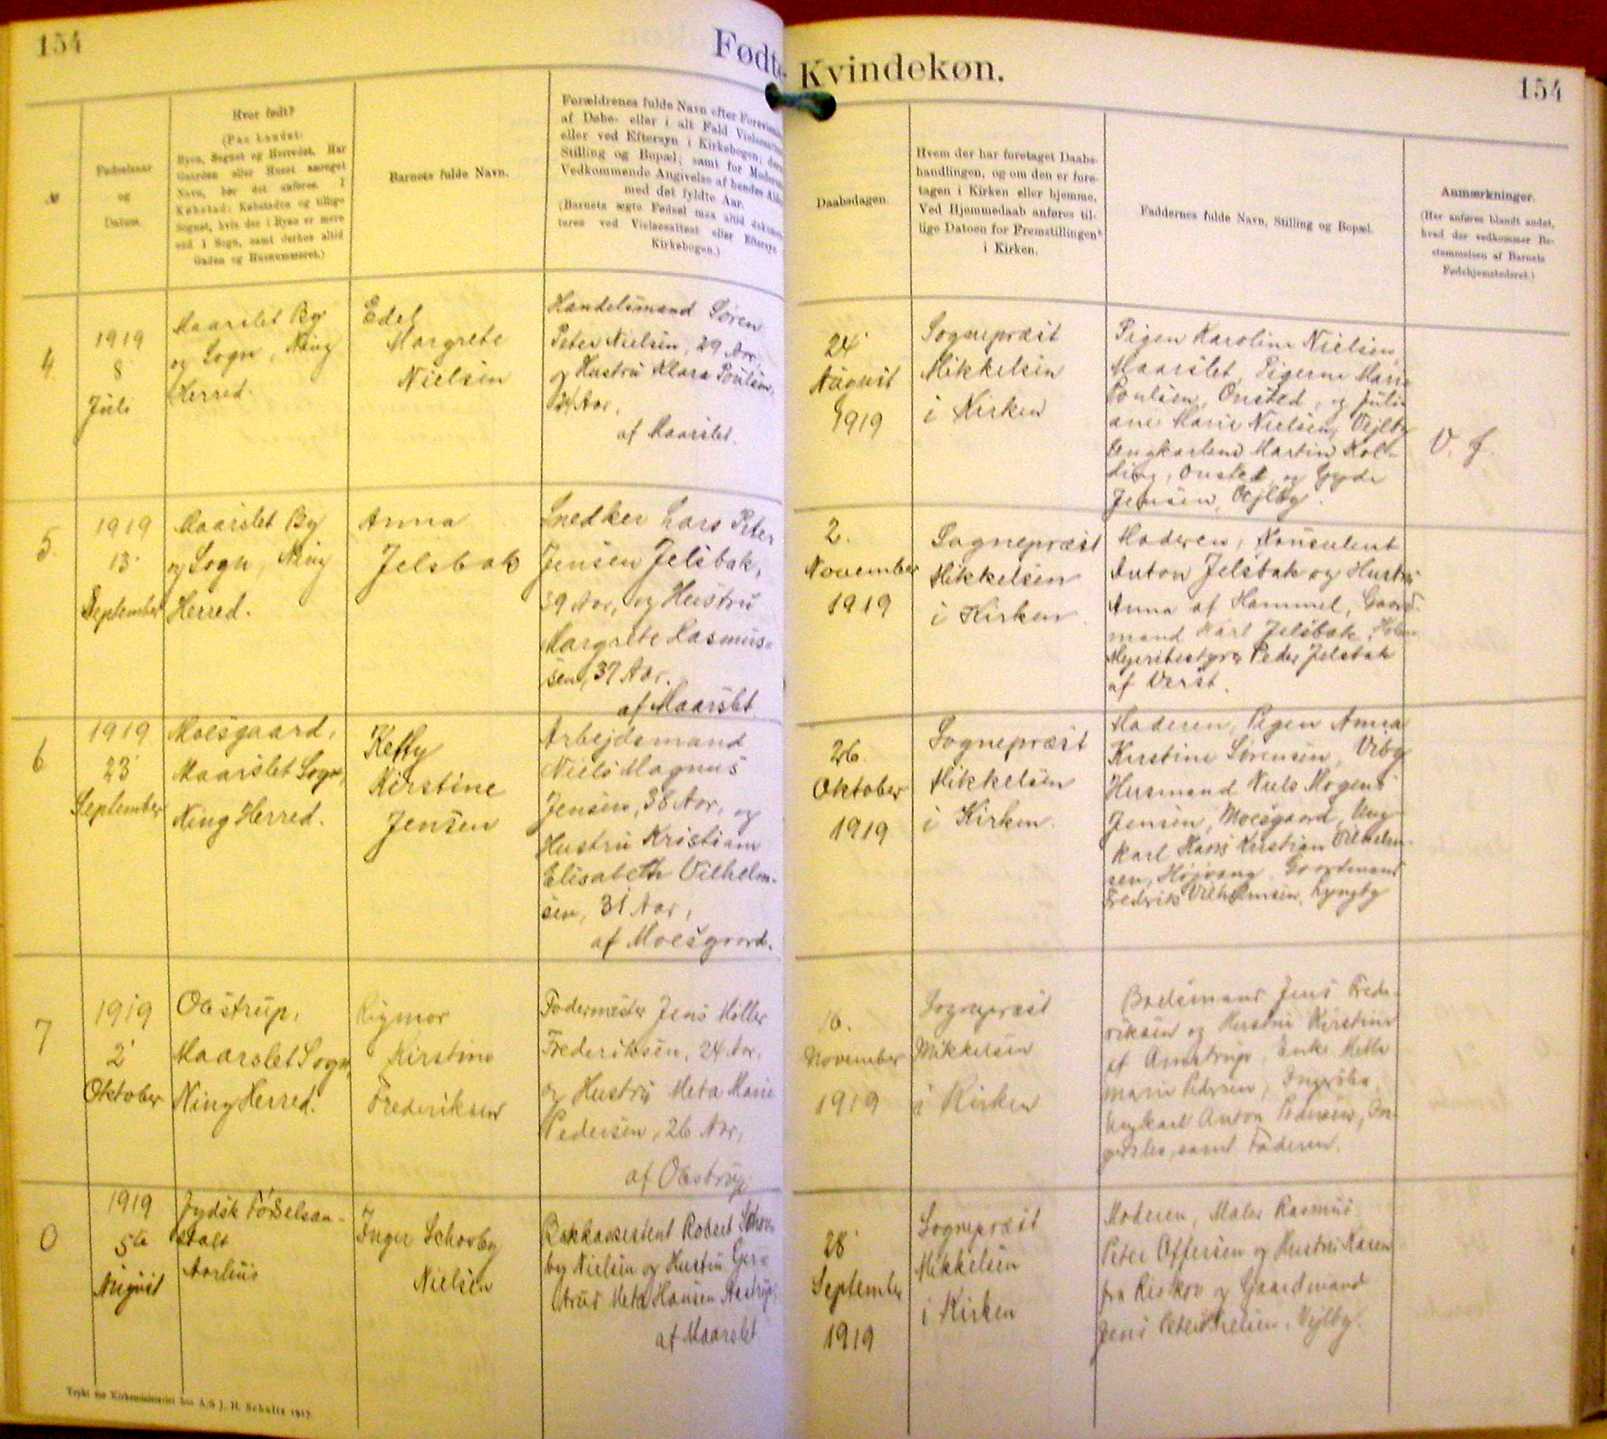 154
Fødte
Kvindekøn.
154
№
Fødselsaar
og
Datum.
Hvor født?
(Paa Landet:
Byen, Sognet og Herredet. Har
Gaarden eller Huset særeget
Navn, bør det anføres. I
Købstad: Købstaden og tillige
Sognet, hvis der i Byen er mere
end 1 Sogn, samt derhos altid
Gaden og Husnummeret.)
Barnets fulde Navn.
Forældrenes fulde Navn efter
af Døbe- eller i alt Fald
eller ved Eftersyn i Kirkebogen;
Stilling og Bopæl; samt for
Vedkommende Angivelse af hendes
med det fyldte Aar.
(Barnets ægte Fødsel maa altid
teres ved Vielsesattest eller Eftersyn
Kirkebogen.)
Daabsdagen.
Hvem der har foretaget Daabs-
handlingen, og om den er fore-
tagen i Kirken eller hjemme.
Ved Hjemmedaab anføres til-
lige Datoen for Fremstillingen
i Kirken.
Faddernes fulde Navn, Stilling og Bopæl.
Anmærkninger.
(Her anføres blandt andet,
hvad der vedkommer Be-
stemmelsen af Barnets
Fødehjemstedsret.)
4
1919
8'
Juli
Maarslet By
og Sogn, Ning
Herred.
Edel
Margrete
Nielsen
Handelsmand Søren
Peter Nielsen, 29 Aar,
og Hustru Klara Poulsen,
Aar,
af Maarslet.
24'
August
1919
Sognepræst
Mikkelsen
i Kirken
Pigen Karoline Nielsen,
Maarslet, Pigerne Marie
Poulsen, Onsted, og Juli-
ane Marie Nielsen, Vejlby
Ungkarlene Martin Kol-
ding, Onsted og
Jensen, Vejlby.
V. f.
5
1919
13'
September
Maarslet By
og Sogn, Ning
Herred.
Anna
Jelsbak
Snedker Lars Peter
Jensen Jelsbak,
39 Aar, og Hustru
Margrete Rasmus-
sen, 37 Aar.
af Maarslet
2.
November
1919
Sognepræst
Mikkelsen
i Kirken
Moderen, Konsulent
Anton Jelsbak og Hustru
Anna af Hammel, Gaard-
mand Karl Jelsbak,
Mejeribestyrer Peder Jelsbak
af Verst.
6
1919
23'
September
Moesgaard,
Maarslet Sogn,
Ning Herred.
Ketty
Kirstine
Jensen
Arbejdsmand
Niels Magnus
Jensen, 38 Aar, og
Hustru Kristiane
Elisabeth Vilhelm-
sen, 31 Aar,
af Moesgaard.
26.
Oktober
1919
Sognepræst
Mikkelsen
i Kirken.
Moderen, Pigen Anna
Kirstine Sørensen, Viby
Husmand Niels Mogens
Jensen, Moesgaard, Ung-
karl Hans Kristian Vilhelm-
sen, Højvang, Gaardmand
Frederik Vilhelmsen, Lyngby
7
1919
2'
Oktober
Obstrup,
Maarslet Sogn,
Ning Herred.
Rigmor
Kirstine
Frederiksen
Fodermester Jens Møller
Frederiksen, 24 Aar,
og Hustru Meta Marie
Pedersen, 26 Aar,
af Obstrup
16.
November
1919
Sognepræst
Mikkelsen
i Kirken
Bødsmand Jens Frede-
riksen og Hustru Kirstine
af Amstrup, Enke Mette
Marie Pedersen, Ingerslev,
Ungkarl Anton Pedersen, In-
gerslev, samt Faderen.
0
1919
5te
August
Jydsk Fødselsan-
stalt
Aarhus
Inger Schovby
Nielsen
Bankassistent Robert Schov-
by Nielsen og Hustru Ger-
trud Meta Hansen Aastrup,
af Maarslet
28'
September
1919
Sognepræst
Mikkelsen
i Kirken
Moderen, Maler Rasmus
Peter Offersen og Hustru Karen
fra Risskov og Gaardmand
Jens Peter Nielsen, Vejlby.
Trykt for Kirkeministeriet hos A/S J. H. Schultz 1917.